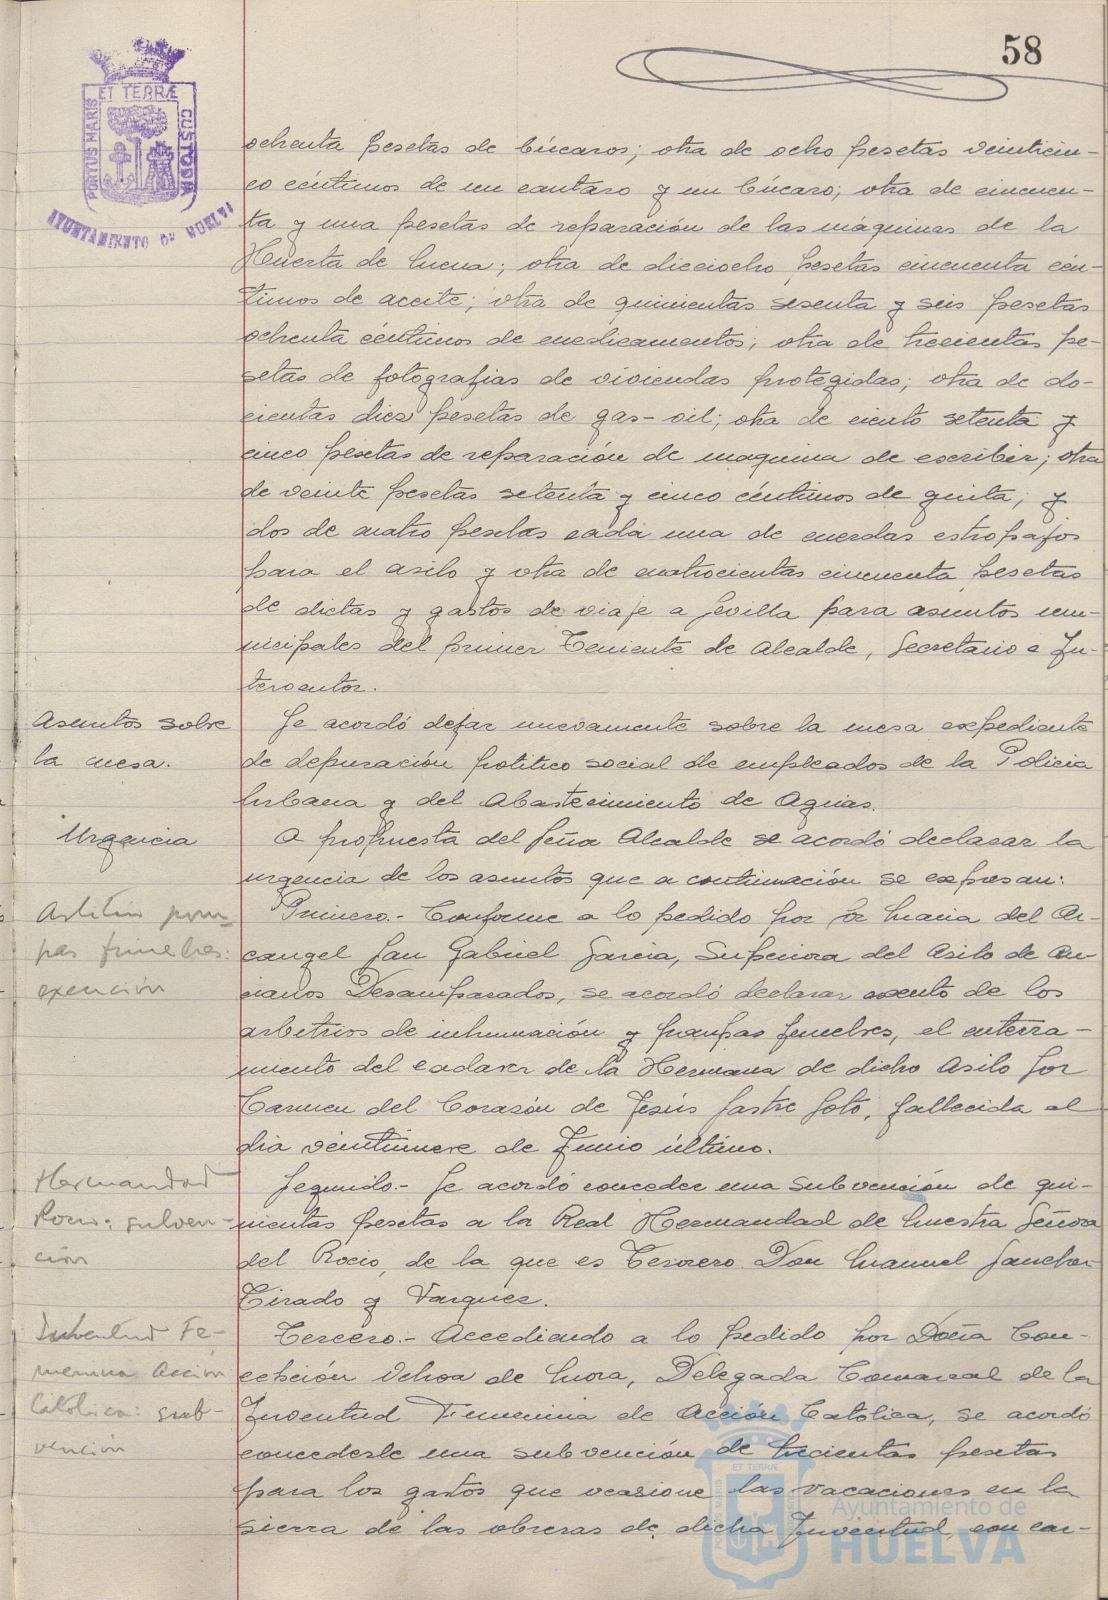 58
PORTUS MARIS ET TERRÆ CUSTODIA
AYUNTAMIENTO DE HUELVA
ochenta pesetas de búcaros; otra de ocho pesetas veinticin-
co céntimos de un cantaro y un búcaro; otra de cincuen-
ta y una pesetas de reparación de las máquinas de la
Huerta de Mena; otra de dieciocho pesetas cincuenta cén-
timos de aceite; otra de quinientas sesenta y seis pesetas
ochenta céntimos de medicamentos; otra de trecientas pe-
setas de fotografias de viviendas protegidas; otra de do-
cientas diez pesetas de gas-oil; otra de ciento setenta y
cinco pesetas de reparación de maquina de escribir; otra
de veinte pesetas setenta y cinco céntimos de guita; y
dos de cuatro pesetas cada una de cuerdas estropajos
para el asilo y otra de cuatrocientas cincuenta pesetas
de dietas y gastos de viaje a Sevilla para asuntos mu-
nicipales del primer Teniente de Alcalde, Secretario e In-
terventor.
Asuntos sobre
la mesa.
Se acordó dejar nuevamente sobre la mesa expediente
de depuración politico social de empleados de la Policia
Urbana y del Abastecimiento de Aguas.
Urgencia
A propuesta del Señor Alcalde se acordó declarar la
urgencia de los asuntos que a continuación se expresan:
Arbitrio pom-
pas funebres:
exención
Primero.- Conforme a lo pedido por Sor Maria del Ar-
cangel San Gabriel Garcia, Superiora del Asilo de An-
cianos Desamparados, se acordó declarar exento de los
arbitrios de inhumación y pompas funebres, el enterra-
miento del cadaver de la Hermana de dicho Asilo Sor
Carmen del Corazón de Jesús Sastre Soto, fallecida el
dia veintinueve de Junio último.
Hermandad
Rocio: subven-
ción
Segundo.- Se acordó conceder una subvención de qui-
nientas pesetas a la Real Hermandad de Nuestra Señora
del Rocio, de la que es Tesorero Don Manuel Sanchez-
Tirado y Vazquez.
Juventud Fe-
menina Acción
Católica: sub-
vención
Tercero.- Accediendo a lo pedido por Doña Con-
cepción Ochoa de Mora, Delegada Comarcal de la
Juventud Femenina de Acción Catolica, se acordó
concederle una subvención de trecientas pesetas
para los gastos que ocasione las vacaciones en la
sierra de las obreras de dicha Juventud, con car-
Ayuntamiento de
HUELVA